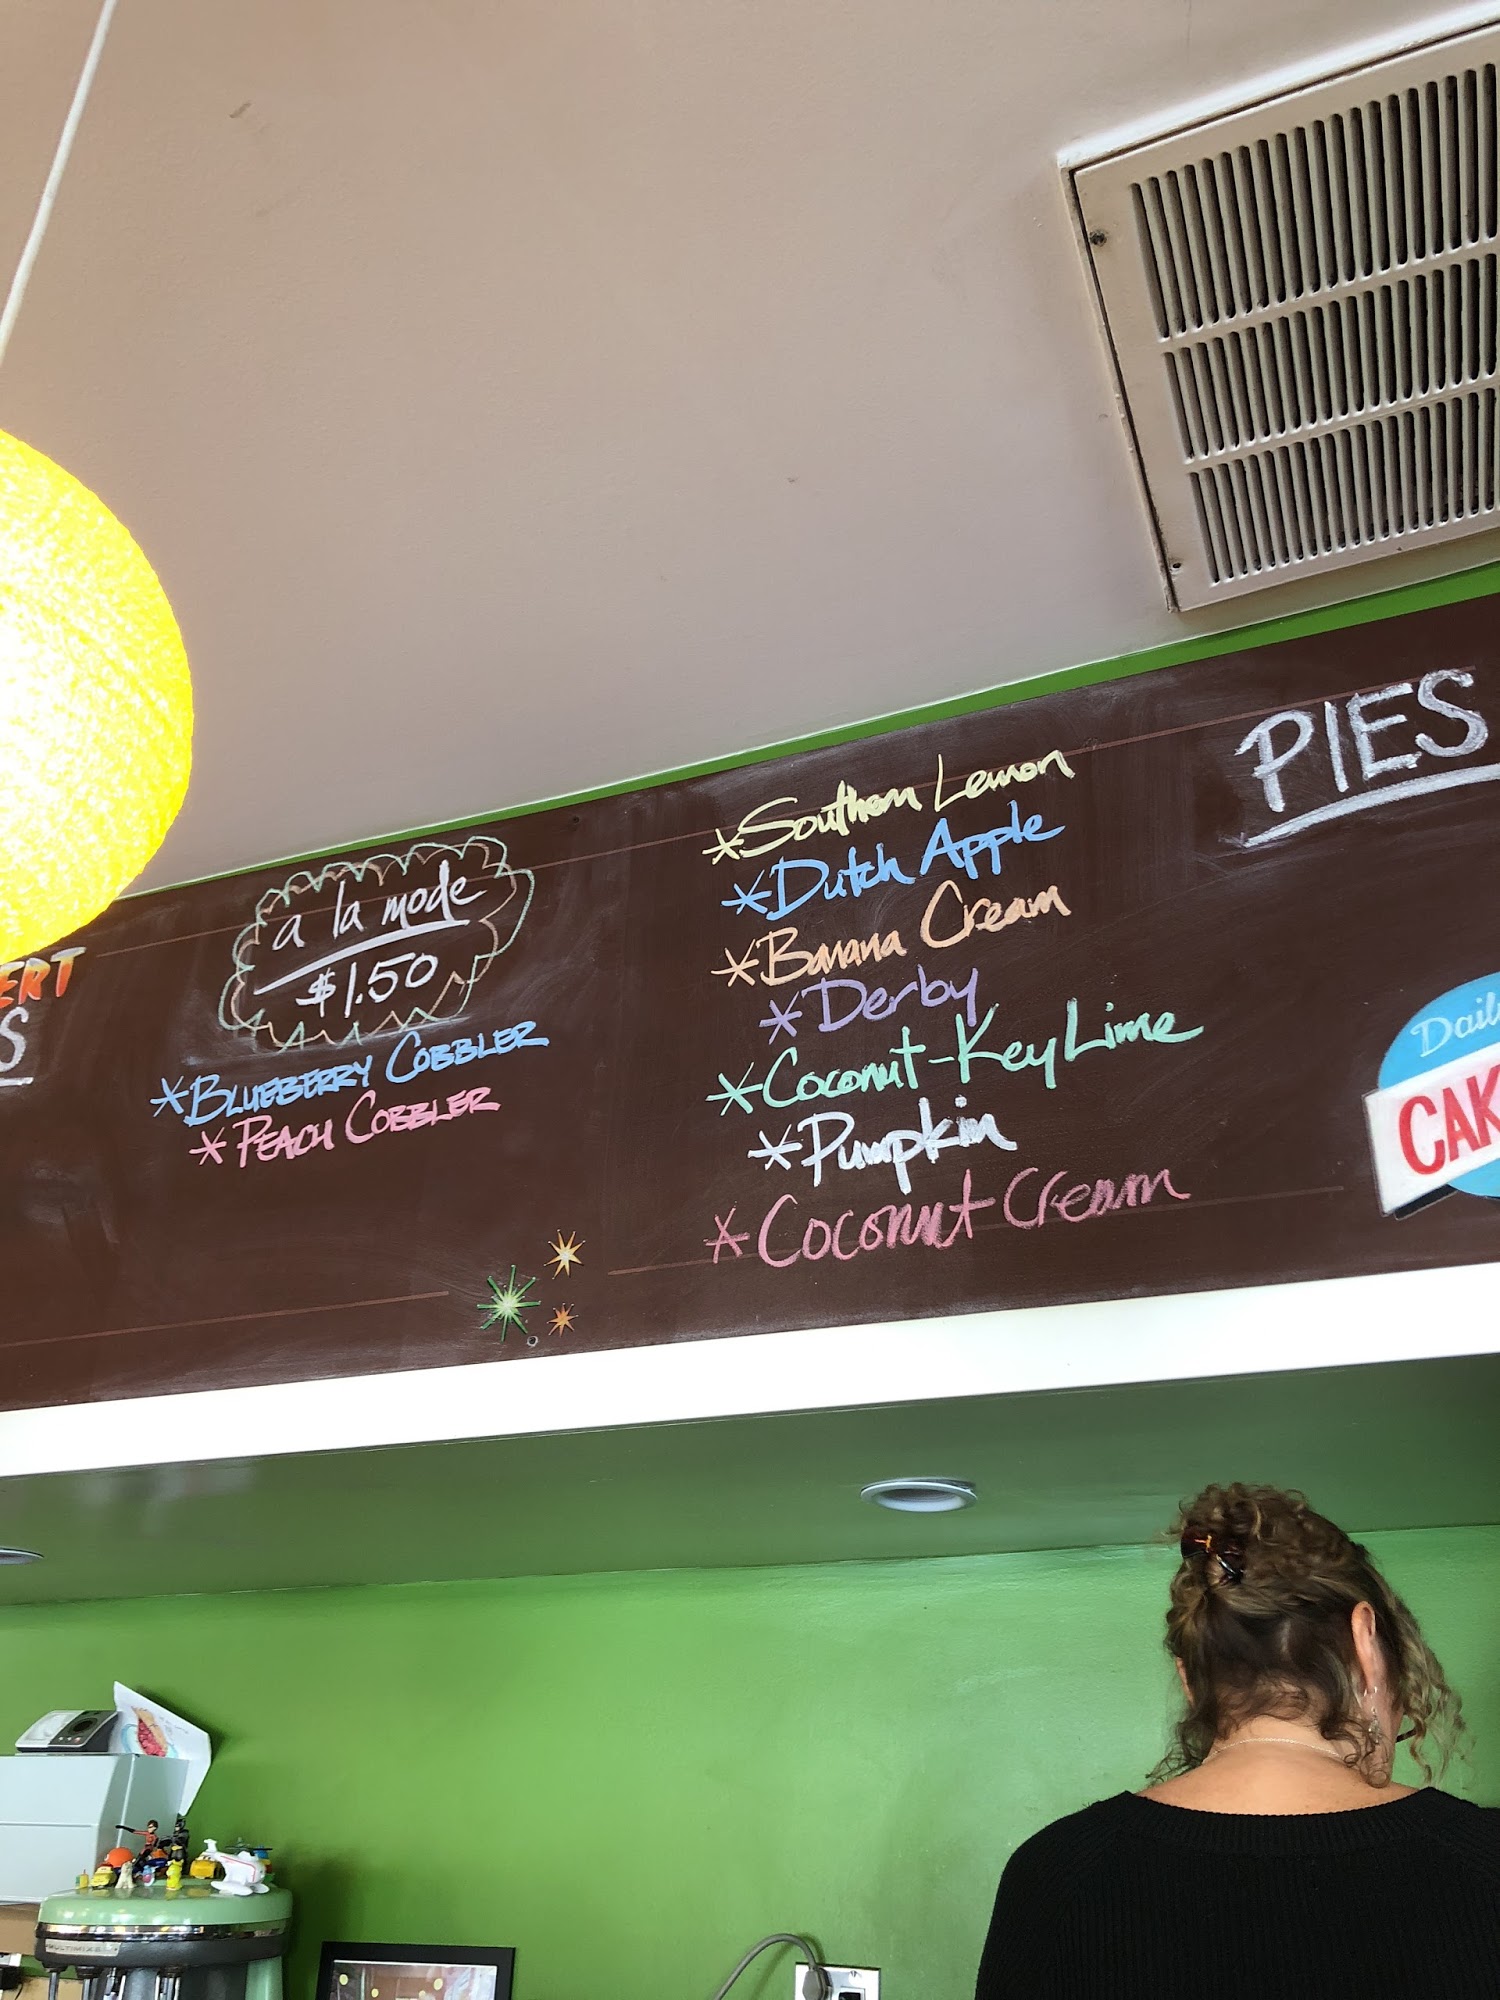 ERT
S
a la mode
$1.50
*BLUEBERRY COBBLER
*PEACH COBBLER
*Southern Lemon
*Dutch Apple
*Banana Cream
*Derby
*Coconut-Key Lime
*Pumpkin
*Coconut Cream
PIES
Dail
CAK
MULTIMIXE